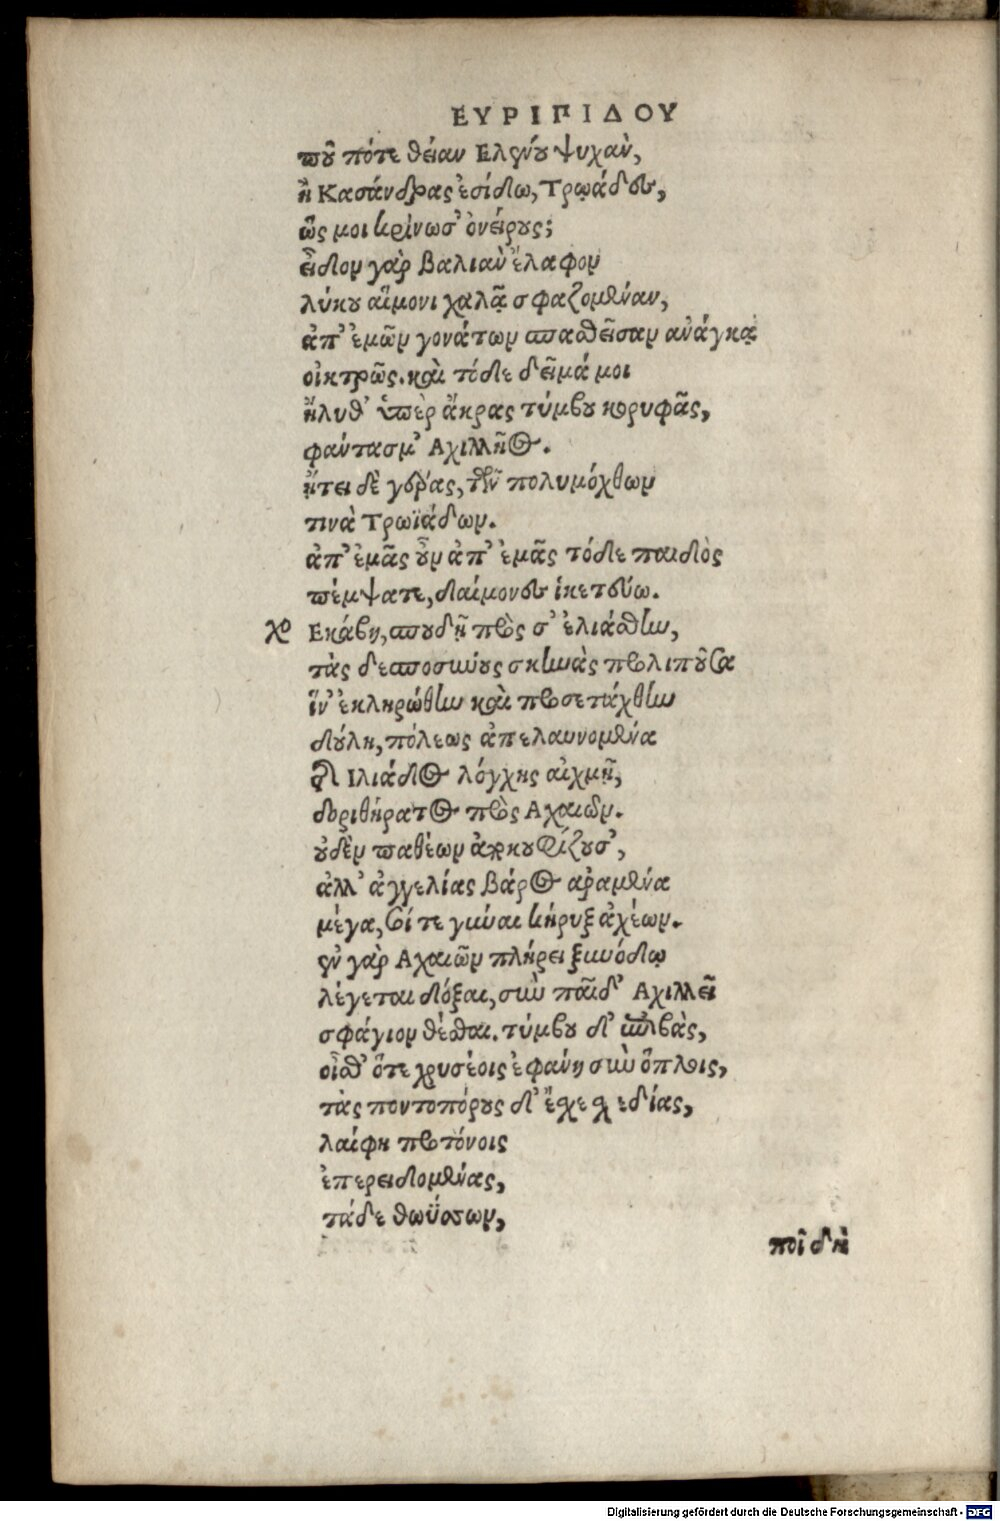 ΕΥΡΙΠΙΔΟΥ
ποῦ ποτε θείαν Ελένου ψυχὰν,
ἢ Κασάνδρας ἐσίδω, Τρῳάδες,
ὥς μοι κρίνωσ' ὀνείρους;
εἶδον γὰρ βαλιὰν ἔλαφον
λύκου αἵμονι χαλᾷ σφαζομέναν,
ἀπ' ἐμῶν γονάτων σπασθεῖσαν ἀνάγκᾳ
οἰκτρῶς. καὶ τόδε δεῖμά μοι
ἤλυθ' ὑπὲρ ἄκρας τύμβου κορυφᾶς,
φάντασμ' Αχιλλῆος.
ᾔτει δὲ γέρας, τῶν πολυμόχθων
τινὰ Τρωϊάδων.
ἀπ' ἐμᾶς οὖν ἀπ' ἐμᾶς τόδε παιδὸς
πέμψατε, δαίμονες ἱκετεύω.
χο Εκάβη, σπουδῇ πρὸς σ' ἐλιάσθην,
τὰς δεσποσύνους σκηνὰς προλιποῦσα
ἵν' ἐκληρώθην καὶ προσετάχθην
δούλη, πόλεως ἀπελαυνομένα
τῆς Ιλιάδος λόγχης αἰχμῇ,
δοριθήρατος πρὸς Αχαιῶν.
οὐδὲν παθέων ἀποκουφίζουσ',
ἀλλ' ἀγγελίας βάρος ἀραμένα
μέγα, σοί τε γύναι κήρυξ ἀχέων.
ἐν γὰρ Αχαιῶν πλήρει ξυνόδῳ
λέγεται δόξαι, σὴν παῖδ' Αχιλλεῖ
σφάγιον θέσθαι. τύμβου δ' ἐπιβὰς,
οἶσθ' ὅτε χρυσέοις ἐφάνη σὺν ὅπλοις,
τὰς ποντοπόρους δ' ἔσχε σχεδίας,
λαίφη προτόνοις
ἐπερειδομένας,
τάδε θωΰσσων,
ποῖ δὴ
Digitalisierung gefördert durch die Deutsche Forschungsgemeinschaft - DFG